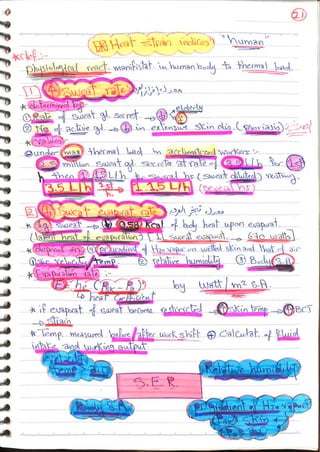 21
Heat strain indices "human"
* Def.:-
physiological react. manifistat. in human body to thermal load.
1 ↑ Sweat rate
* determined by:-
① Rate of sweat gl. secret → ↓ elderly
② No of active gl. → ↓ in extensive skin dis. (psoriasis)
* Values
@ under max thermal load in acclimatized workers:-
2.5 million sweat gl. secrete at rate of 3.5 L/h for 1st
h then 1.15 L/h several hs (sweat diluted) resting
3.5 L/h 1st h → 1.15 L/h (several hs)
2 ↑ Sweat evaporat. rate
* 1g sweat → ↓ 0.58 Kcal of body heat upon evaporat.
(latent heat of evaporation) (1 L sweat evaporat. → 670 watt)
of H2O vapor on wetted skin and that of air
① air velocity / Temp. ② relative humidity ③ Body S.A
* Evaporation rate:-
by watt / m² S.A.
↳ heat coefficient
* if evaporat. of sweat become restricted → ↑ skin temp → ↑ BCT
→ strain
* Temp. measured before/after work shift ⊕ Calculat. of fluid
intake and urine output
Relative humidity
S.E.R
Body S.A
P. gradient of H2O vapor
skin